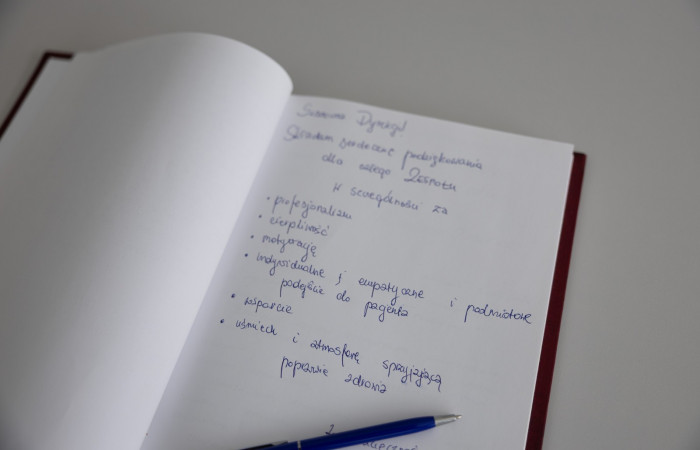 Szanowna Dyrekcjo!
Składam serdeczne podziękowania
dla całego Zespołu
W szczególności za
• profesjonalizm
• cierpliwość
• motywację
• indywidualne, empatyczne i podmiotowe
podejście do pacjenta
• wsparcie
• uśmiech i atmosferę sprzyjającą
poprawie zdrowia